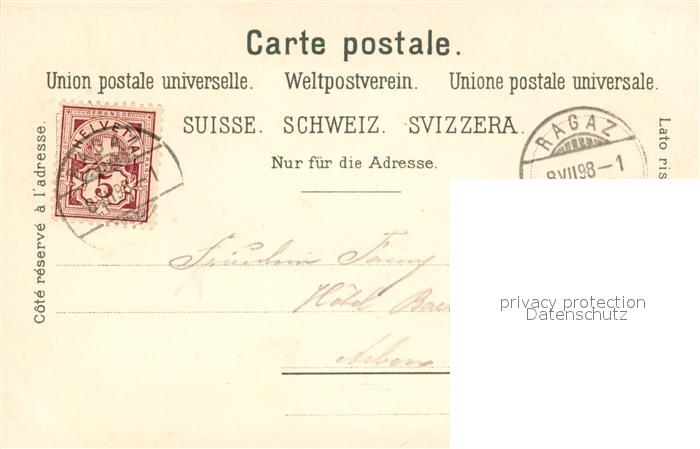 Carte postale.
Union postale universelle. Weltpostverein. Unione postale universale.
SUISSE. SCHWEIZ. SVIZZERA.
Nur für die Adresse.
Côté réservé à l'adresse.
Lato ris
FRANCO
HELVETIA
5
RAGAZ
8VII98–1
Fräulein Fanny
Hôtel
Arbon
privacy protection
Datenschutz